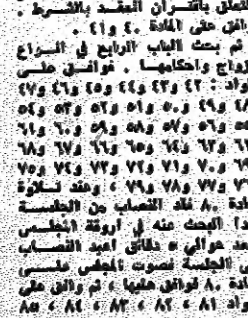 المتعلق باقتران العقد بالشرط .
وافق على المادة ٤٠ و٤١ .
ثم بحث الباب الرابع في انواع
الزواج واحكامها . فوافق على
المواد : ٤٢ و٤٣ و٤٤ و٤٥ و٤٦ و٤٧
و٤٨ و٤٩ و٥٠ و٥١ و٥٢ و٥٣ و٥٤
و٥٥ و٥٦ و٥٧ و٥٨ و٥٩ و٦٠ و٦١
و٦٢ و٦٣ و٦٤ و٦٥ و٦٦ و٦٧ و٦٨
و٦٩ و٧٠ و٧١ و٧٢ و٧٣ و٧٤ و٧٥
و٧٦ و٧٧ و٧٨ و٧٩ ، وعند تلاوة
المادة ٨٠ فقد النصاب من الجلسة
البحث عنه في اروقة المجلس
وبعد حوالي ٥ دقائق اعيد النصاب
الى الجلسة فصوت المجلس على
المادة ٨٠ فوافق عليها ، ثم وافق على
المواد ٨١ ، ٨٢ ، ٨٣ ، ٨٤ ، ٨٥